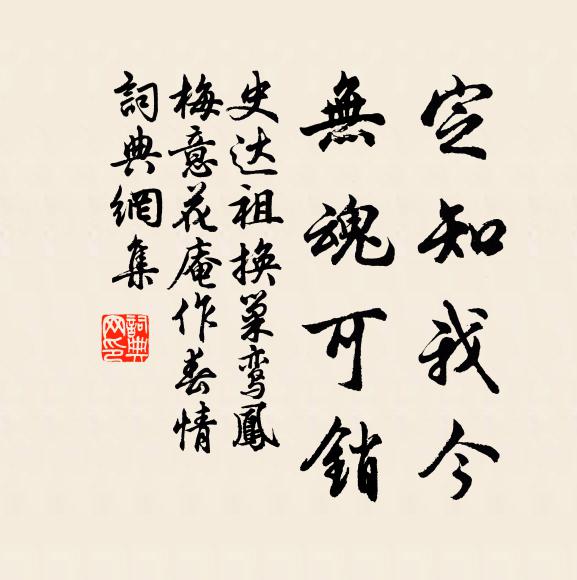 定知我今
無魂可銷
史达祖換巢鸾鳳
梅意花庵作春情
詞典網集
詞典網印